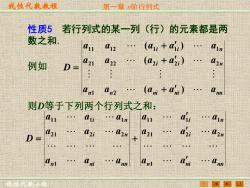 线性代数教程
第一章 n阶行列式
性质5 若行列式的某一列（行）的元素都是两
数之和.
例如 D =
a11 a12 … (a1i + a′1i) … a1n
a21 a22 … (a2i + a′2i) … a2n
⋮ ⋮ ⋮ ⋮
an1 an2 … (ani + a′ni) … ann
则D等于下列两个行列式之和：
D =
a11 … a1i … a1n
a21 … a2i … a2n
⋮ ⋮ ⋮
an1 … ani … ann
+
a11 … a′1i … a1n
a21 … a′2i … a2n
⋮ ⋮ ⋮
an1 … a′ni … ann